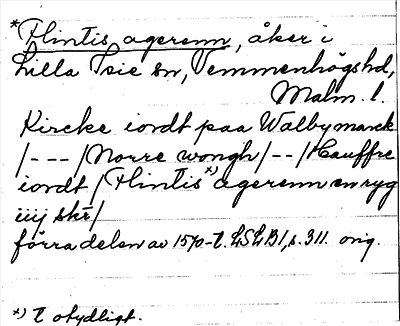 *Flintis agerenn, åker i
Lilla Isie sn, Vemmenhögs hd,
Malm. l.
Kircke iordt paa Walbymarck
/---/Norre wongh/--/Hauffre
iordt/Flintis*) agerenn en ryg
iiij skr/
förra delen av 1570-t. LSLB1, s. 311. orig.
*) t otydligt.